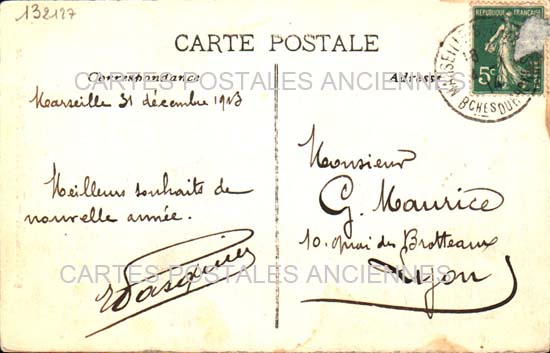 132127
CARTE POSTALE
Correspondance
Adresse
CARTES POSTALES ANCIENNES
REPUBLIQUE FRANÇAISE
5c
MARSEILLE
BCHES DU RHONE
Marseille 31 décembre 1913
Meilleurs souhaits de
nouvelle année.
Monsieur
G. Maurice
10. quai des Brotteaux
Lyon
CARTES POSTALES ANCIENNES